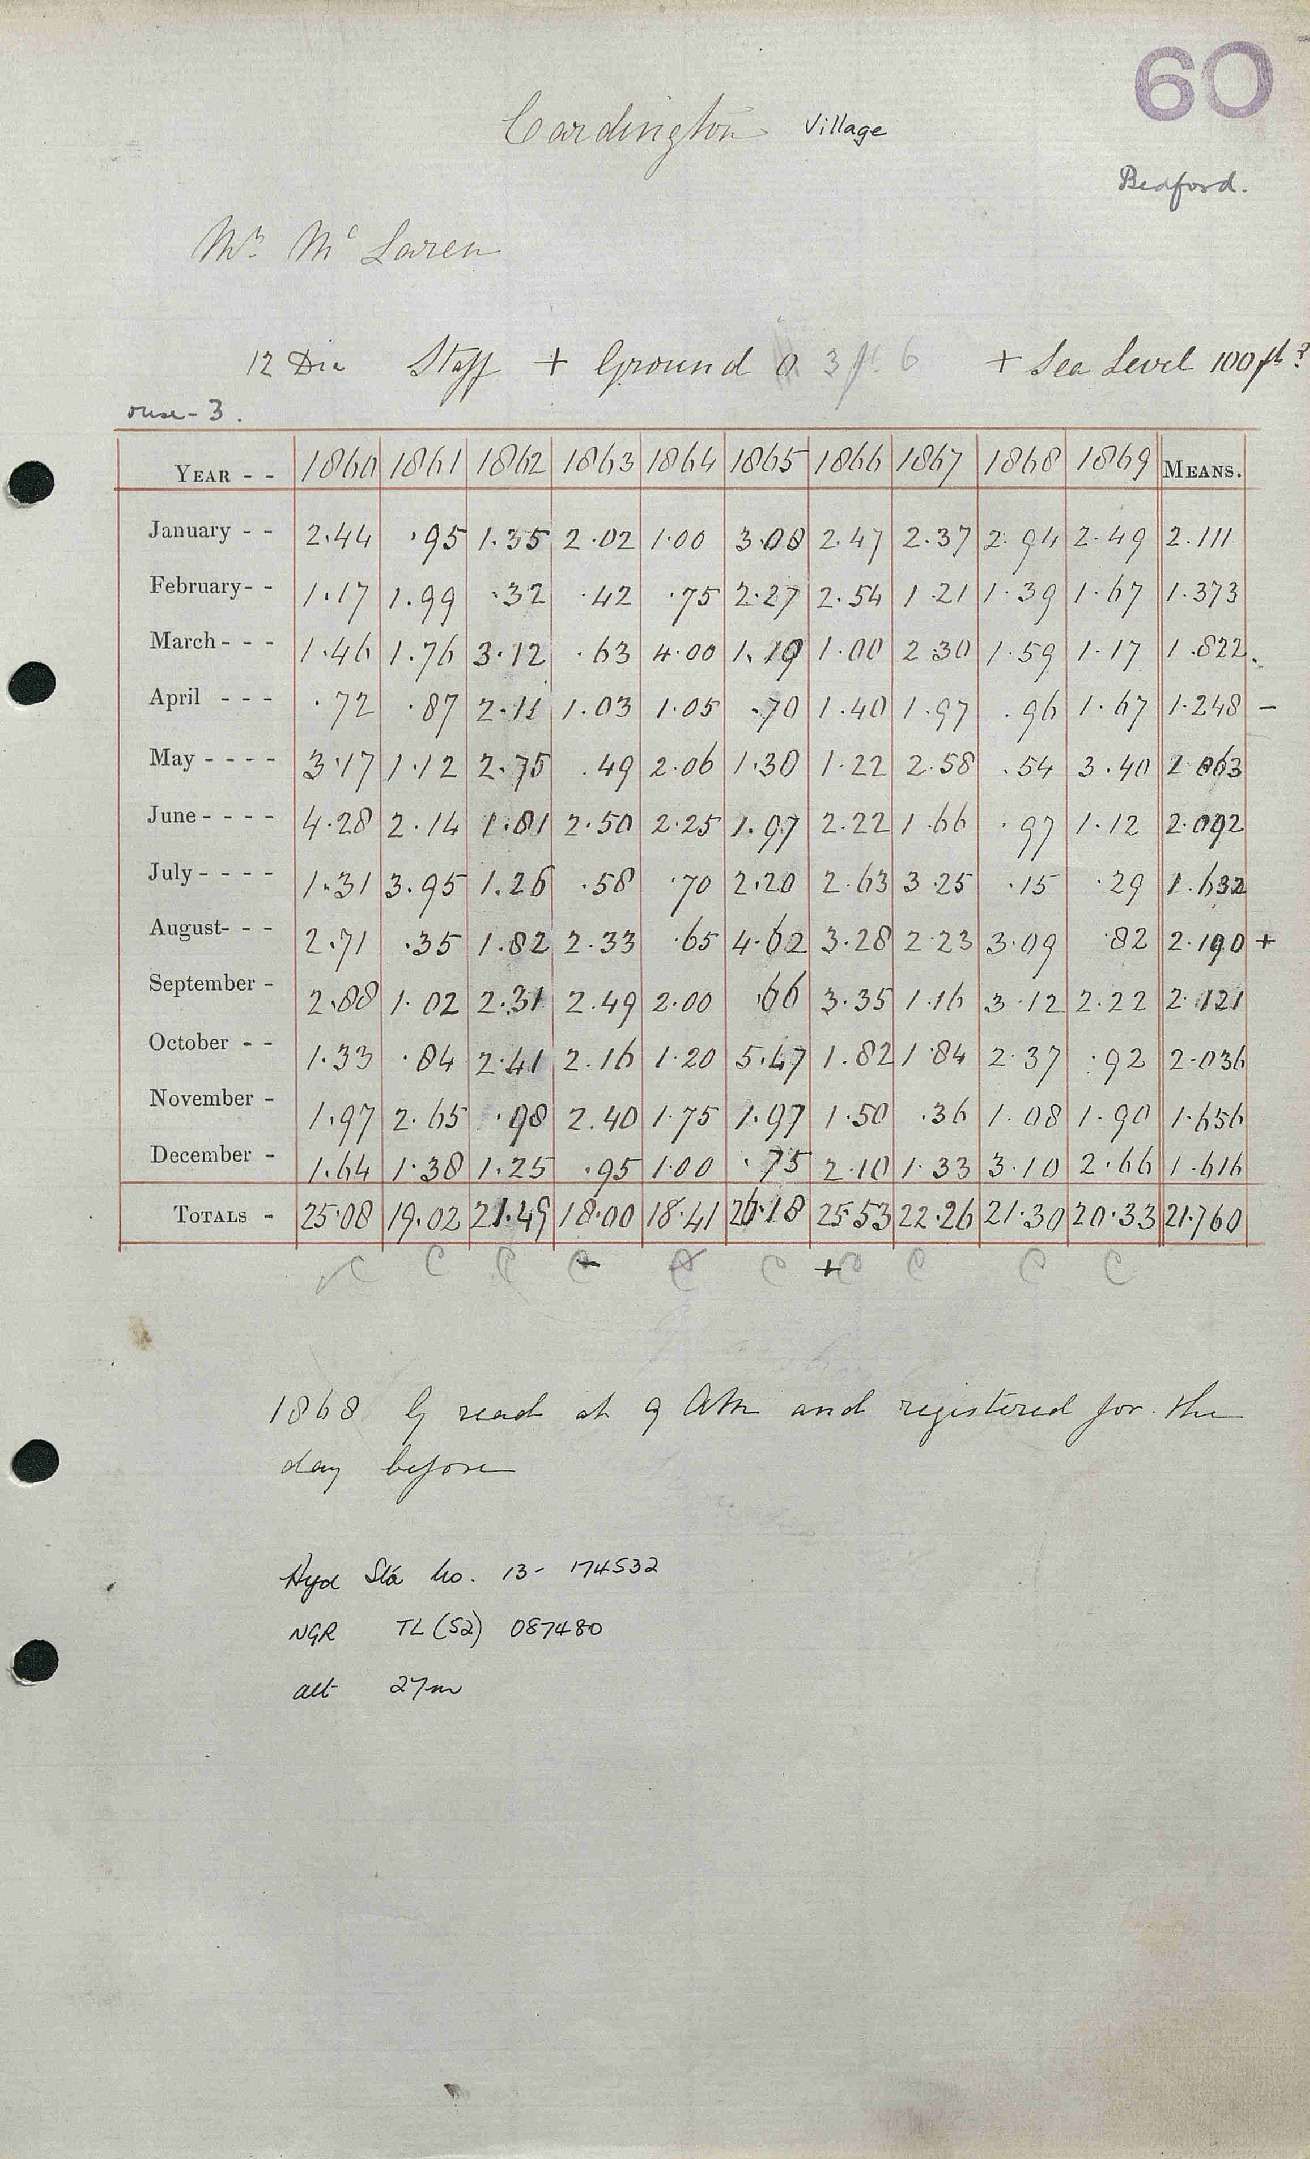 60
Cardington Village
Bedford.
Mr. Mc Laren
12 Dia Staff + Ground 0 3 ft. 6 + Sea Level 100 ft?
ouse-3.
YEAR - - 1860 1861 1862 1863 1864 1865 1866 1867 1868 1869 MEANS.
January - - 2.44 .95 1.35 2.02 1.00 3.08 2.47 2.37 2.94 2.49 2.111
February- - 1.17 1.99 .32 .42 .75 2.27 2.54 1.21 1.39 1.67 1.373
March - - - 1.46 1.76 3.12 .63 4.00 1.19 1.00 2.30 1.59 1.17 1.822
April - - - .72 .87 2.11 1.03 1.05 .70 1.40 1.97 .96 1.67 1.248 -
May - - - - 3.17 1.12 2.75 .49 2.06 1.30 1.22 2.58 .54 3.40 1.863
June - - - - 4.28 2.14 1.81 2.50 2.25 1.97 2.22 1.66 .97 1.12 2.092
July - - - - 1.31 3.95 1.26 .58 .70 2.20 2.63 3.25 .15 .29 1.632
August- - - 2.71 .35 1.82 2.33 .65 4.62 3.28 2.23 3.09 .82 2.190 +
September - 2.88 1.02 2.31 2.49 2.00 .66 3.35 1.16 3.12 2.22 2.121
October - - 1.33 .84 2.41 2.16 1.20 5.47 1.82 1.84 2.37 .92 2.036
November - 1.97 2.65 .98 2.40 1.75 1.97 1.50 .36 1.08 1.90 1.656
December - 1.64 1.38 1.25 .95 1.00 .75 2.10 1.33 3.10 2.66 1.616
TOTALS - 25.08 19.02 21.49 18.00 18.41 26.18 25.53 22.26 21.30 20.33 21.760
C C C C C C + C C C C
1868 G read at 9 AM and registered for the
day before
Hyd Sta No. 13- 174532
NGR TL (52) 087480
alt 27m